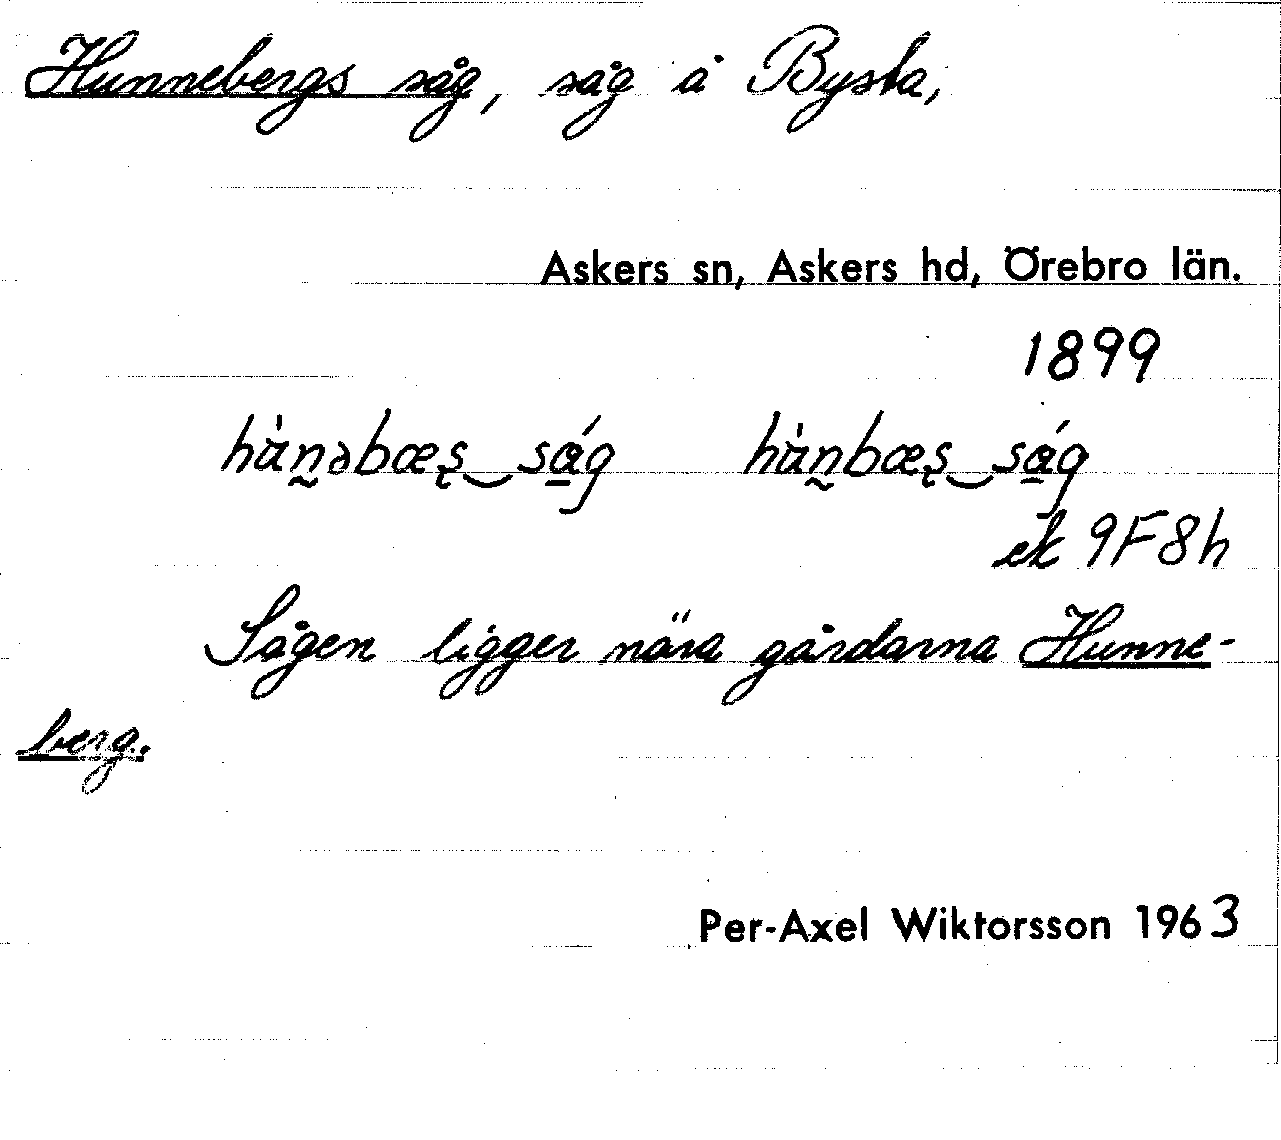 Hunnebergs såg, såg å Bysta,
Askers sn, Askers hd, Örebro län.
1899
ek 9F8h
Sågen ligger nära gårdarna Hunne-
berg.
Per-Axel Wiktorsson 1963